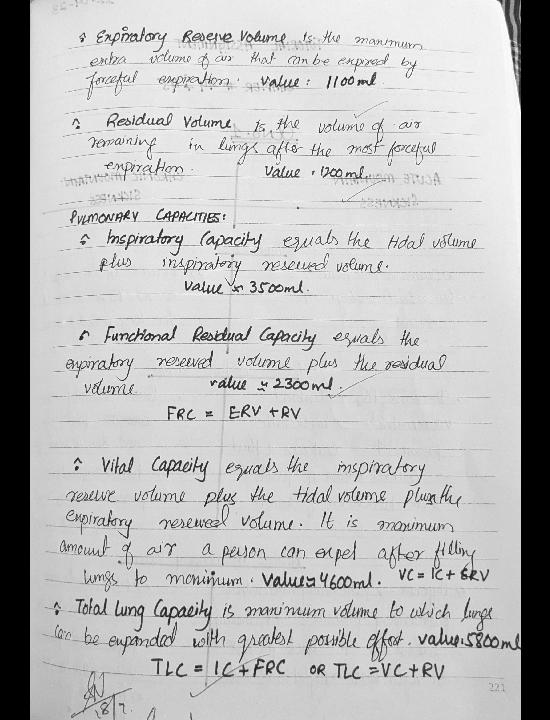 Expiratory Reserve Volume is the maximum
extra volume of air that can be expired by
forceful expiration. Value: 1100ml
Residual Volume Is the volume of air
remaining in lungs after the most forceful
expiration. Value: 1200ml.
PULMONARY CAPACITIES:
Inspiratory Capacity equals the tidal volume
plus inspiratory reserved volume.
Value ≈ 3500ml.
Functional Residual Capacity equals the
expiratory reserved volume plus the residual
volume. value ≈ 2300ml.
FRC = ERV + RV
Vital Capacity equals the inspiratory
reserve volume plus the tidal volume plus the
expiratory reserved volume. It is maximum
amount of air a person can expel after filling
lungs to maximum. Value ≈ 4600ml. VC = IC + ERV
Total Lung Capacity is maximum volume to which lungs
can be expanded with greatest possible effort. value: 5800ml
TLC = IC + FRC OR TLC = VC + RV
221